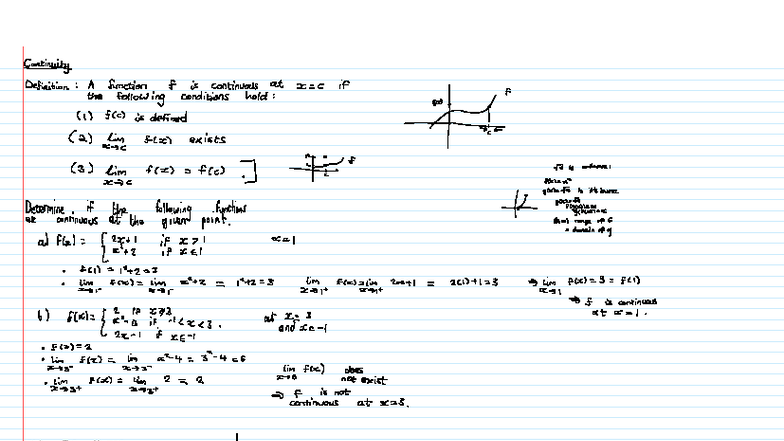 Continuity
Definition: A function f is continuous at x=c if
the following conditions hold:
(1) f(c) is defined
(2) lim x→c f(x) exists
(3) lim x→c f(x) = f(c)
Determine if the following functions
are continuous at the given point.
a) f(x) = { 2x+1 if x>1 x=1
x²+2 if x≤1
• f(1) = 1²+2=3
• lim x→1⁻ f(x) = lim x→1⁻ x²+2 = 1²+2=3 lim x→1⁺ f(x) = lim x→1⁺ 2x+1 = 2(1)+1=3 ⇒ lim x→1 f(x) = 3 = f(1)
⇒ f is continuous
at x=1.
b) f(x) = { 2 if x≥3 at x=3
if -1<x<3 and x=-1
2x-1 if x≤-1
• f(3)=2
• lim x→3⁻ f(x) = lim x→3⁻ x²-4 = 3²-4 =
• lim x→3⁺ f(x) = lim x→3⁺ 2 = 2
lim f(x) does
not exist
⇒ f is not
continuous at x=3.